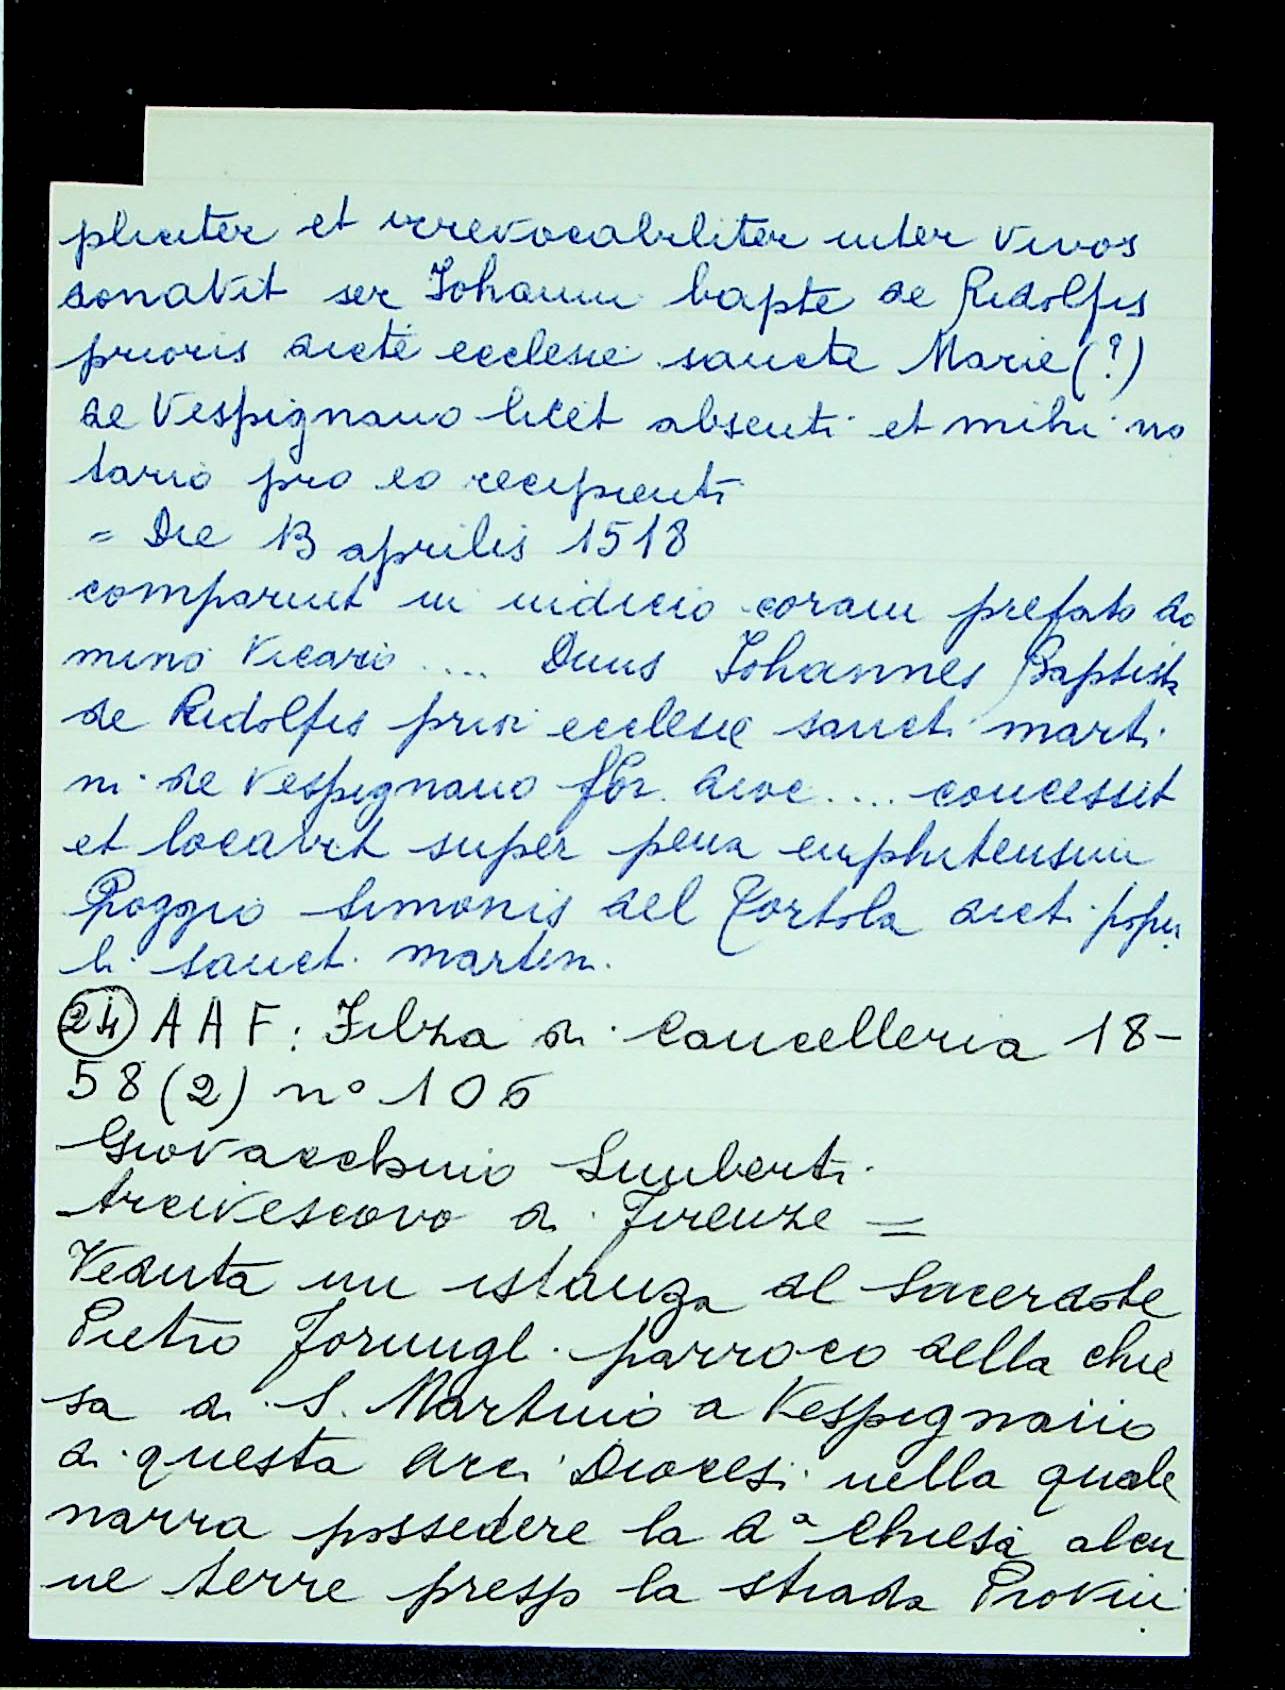 pliciter et irrevocabiliter inter vivos
donavit ser Johanni bapte de Ridolfis
prioris dicte ecclesie sancte Marie (?)
de Vespignano licet absenti et mihi no
tario pro eo recipienti
= Die 13 aprilis 1518
comparuit in iudicio coram prefato do
mino Vicario .... Dnus Johannes Baptista
de Ridolfis prior ecclesie sancti marti
ni de Vespignano flor. dioc .... concessit
et locavit super pena emphiteusim
Poggio Simonis del Tortola dicti popu
li sancti martini.
(24) A A F: Filza di Cancelleria 18-
58 (2) n° 106
Giovacchino Limberti
Arcivescovo di Firenze =
Veduta un istanza del Sacerdote
Pietro parroco della chie
sa di S. Martino a Vespignano
di questa Arci Diocesi nella quale
narra possedere la dª Chiesa alcu
ne terre presso la strada Provin